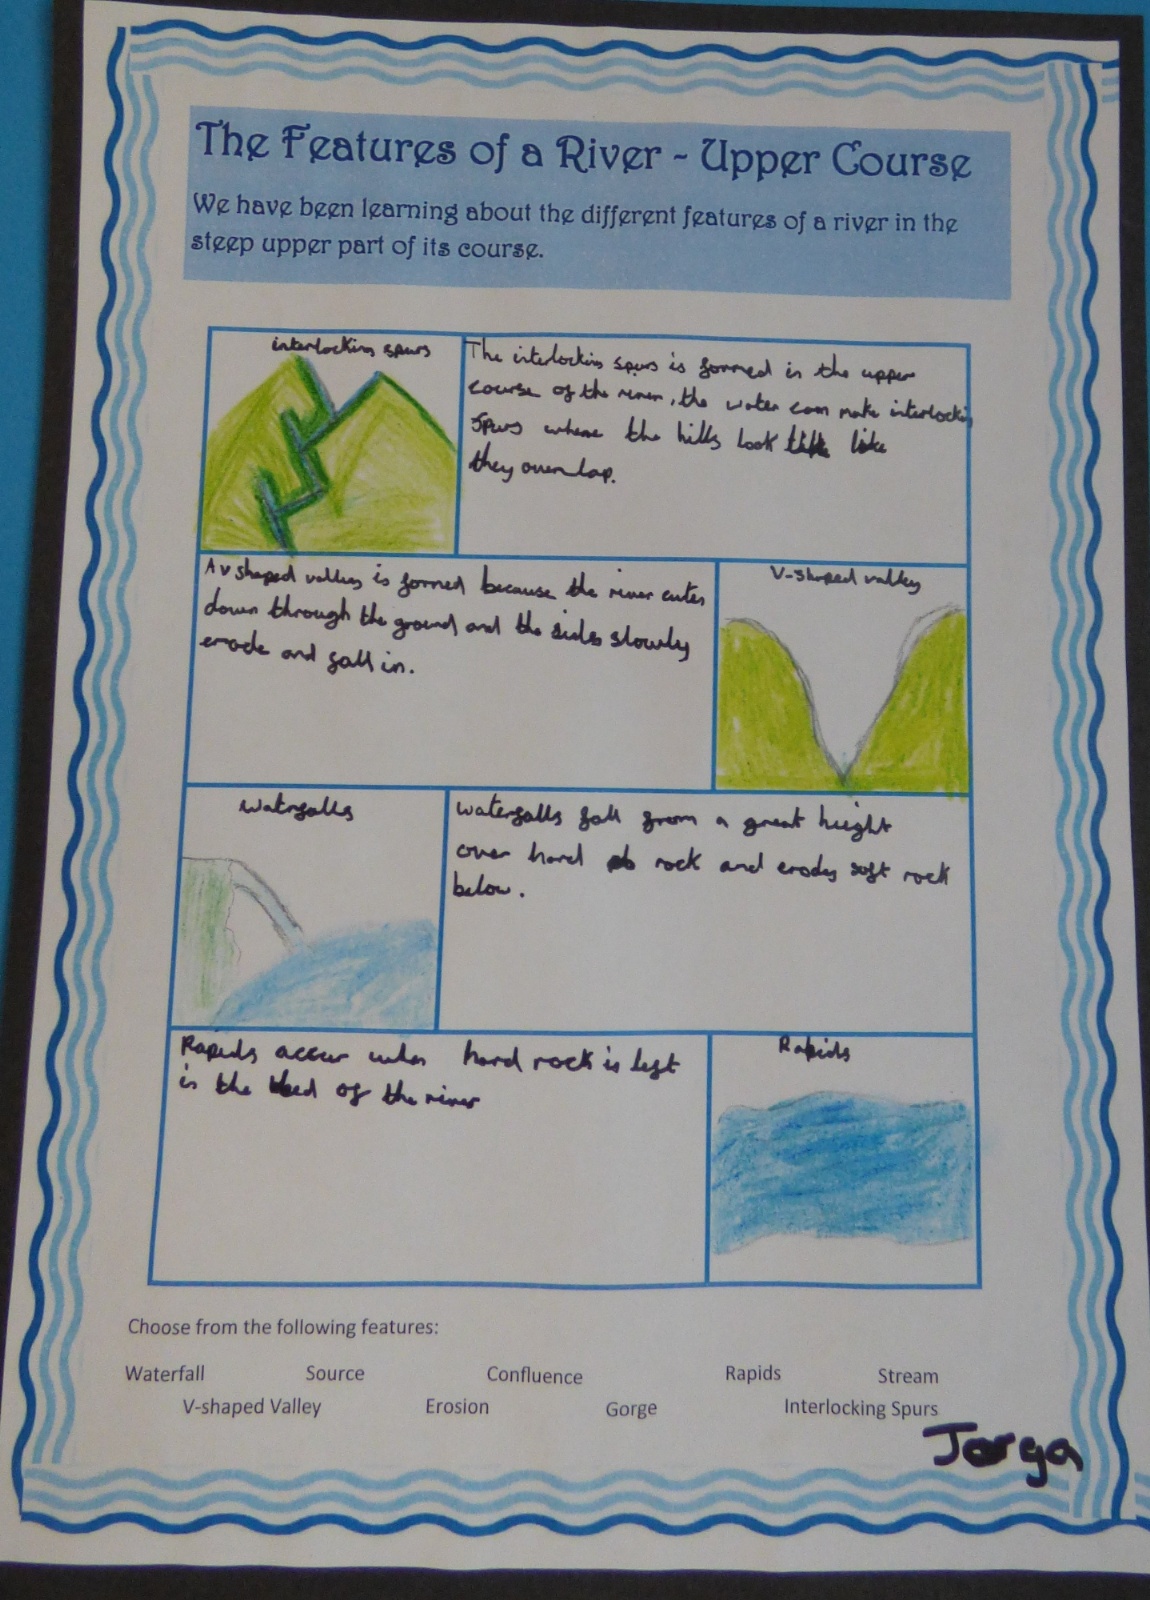 The Features of a River - Upper Course
We have been learning about the different features of a river in the
steep upper part of its course.
interlocking spurs
The interlocking spurs is formed in the upper
course of the river, the water can make interlocking
spurs where the hills look like
they overlap.
A v shaped valley is formed because the river cutes
down through the ground and the sides slowly
erode and fall in.
V-shaped valley
Waterfalls
Waterfalls fall from a great height
over hard rock and erodes soft rock
below.
Rapids occur when hard rock is left
in the bed of the river
Rapids
Choose from the following features:
Waterfall Source Confluence Rapids Stream
V-shaped Valley Erosion Gorge Interlocking Spurs
Jorga